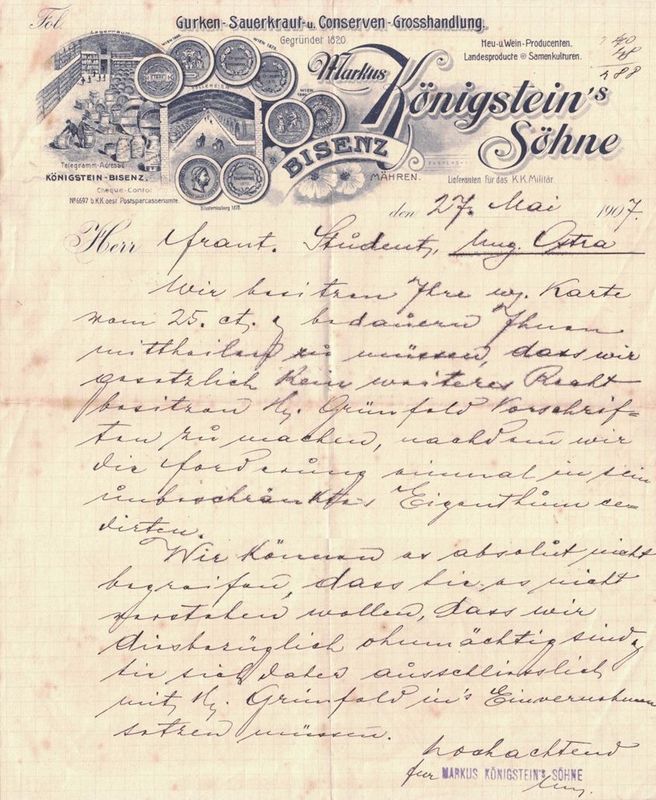 Fol.
Gurken-Sauerkraut-u. Conserven-Grosshandlung.
Gegründet 1820.
Heu-u.Wein-Producenten.
Landesproducte Samenkulturen.
Markus
Königstein's
Söhne
BISENZ
MÄHREN.
Lieferanten für das K.K. Militär.
Lagerraum
WIEN 1873.
Telegramm-Adresse
KÖNIGSTEIN-BISENZ.
Cheque-Conto:
№ 6697 b. K.K. oest. Postsparcassenamte.
den 27. Mai 1907.
Herr Frant. Student, Ung. Ostra
Wir besitzen Ihre w. Karte
vom 25. ct. & bedauern Ihnen
mittheilen zu müssen, dass wir
gesetzlich kein weiteres Recht
besitzen H. Grünfeld Vorschrif-
ten zu machen, nachdem wir
die Forderung einmal in sein
unbeschränktes Eigenthum ce-
dirten.
Wir können es absolut nicht
begreifen, dass Sie es nicht
verstehen wollen, dass wir
diesbezüglich ohnmächtig sind &
Sie sich daher ausschliesslich
mit H. Grünfeld in's Einvernehmen
setzen müssen.
hochachtend
für MARKUS KÖNIGSTEIN'S SÖHNE